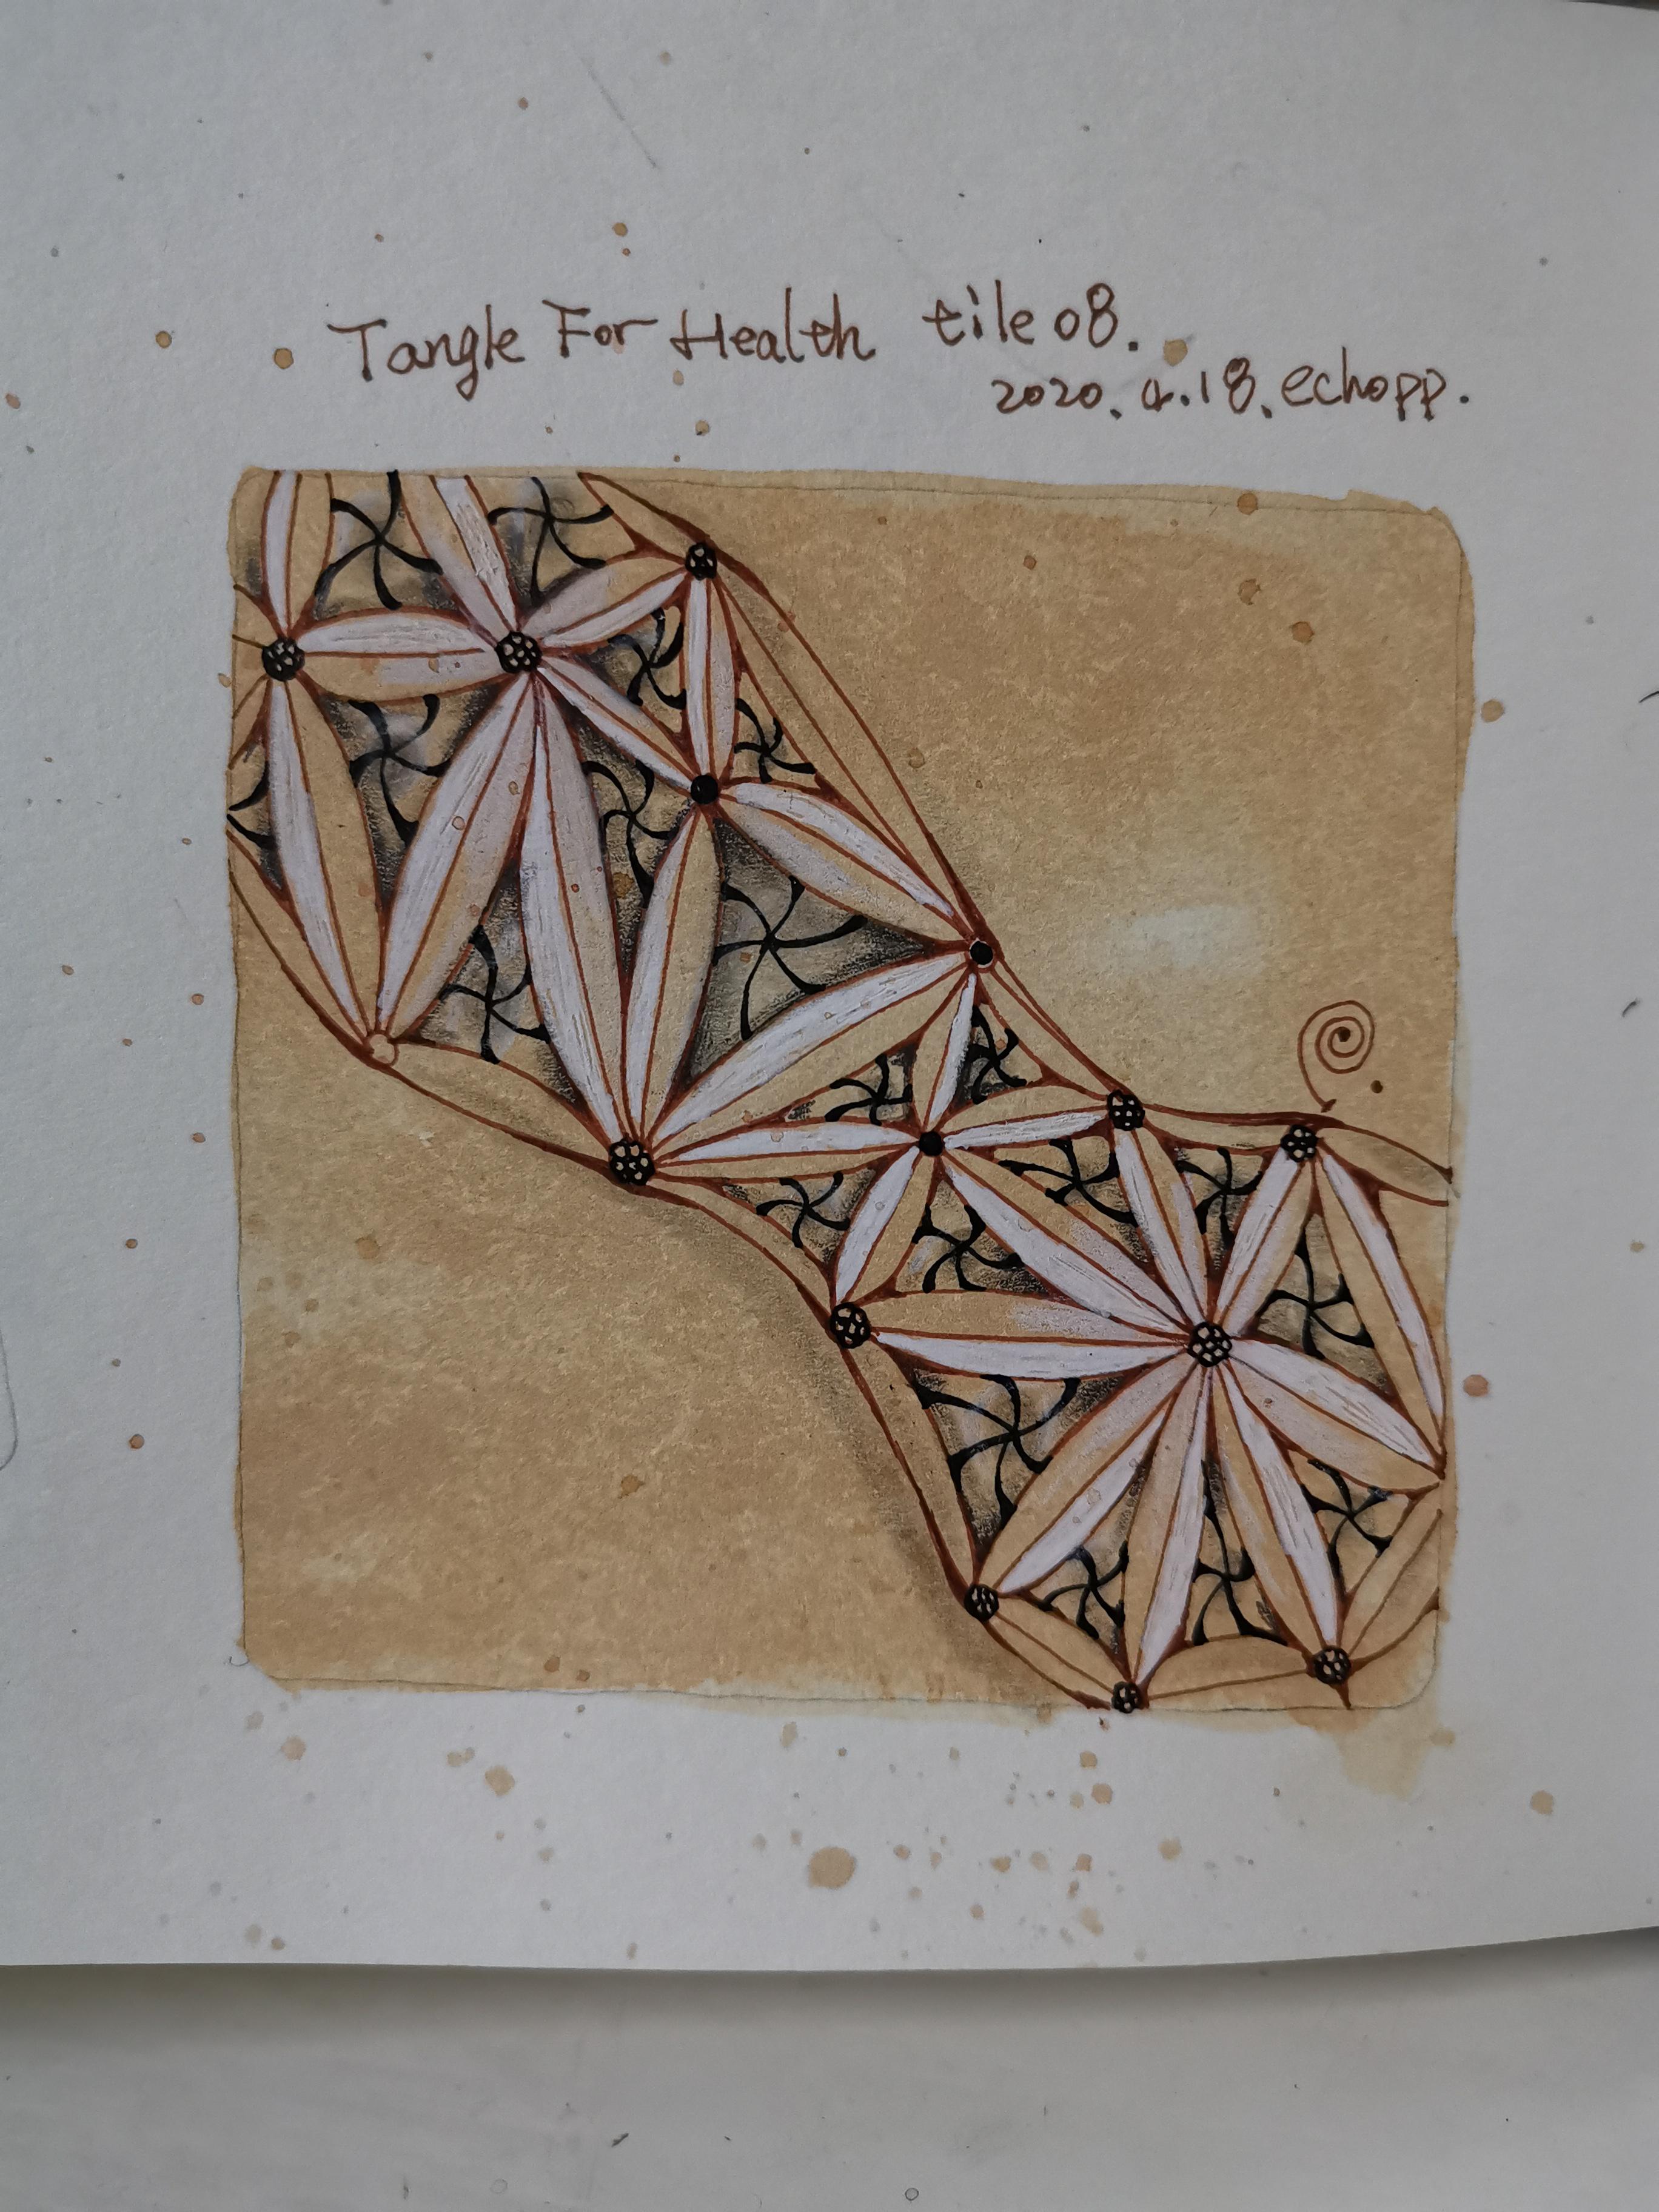 Tangle For Health tile 08.
2020.4.18.echopp.